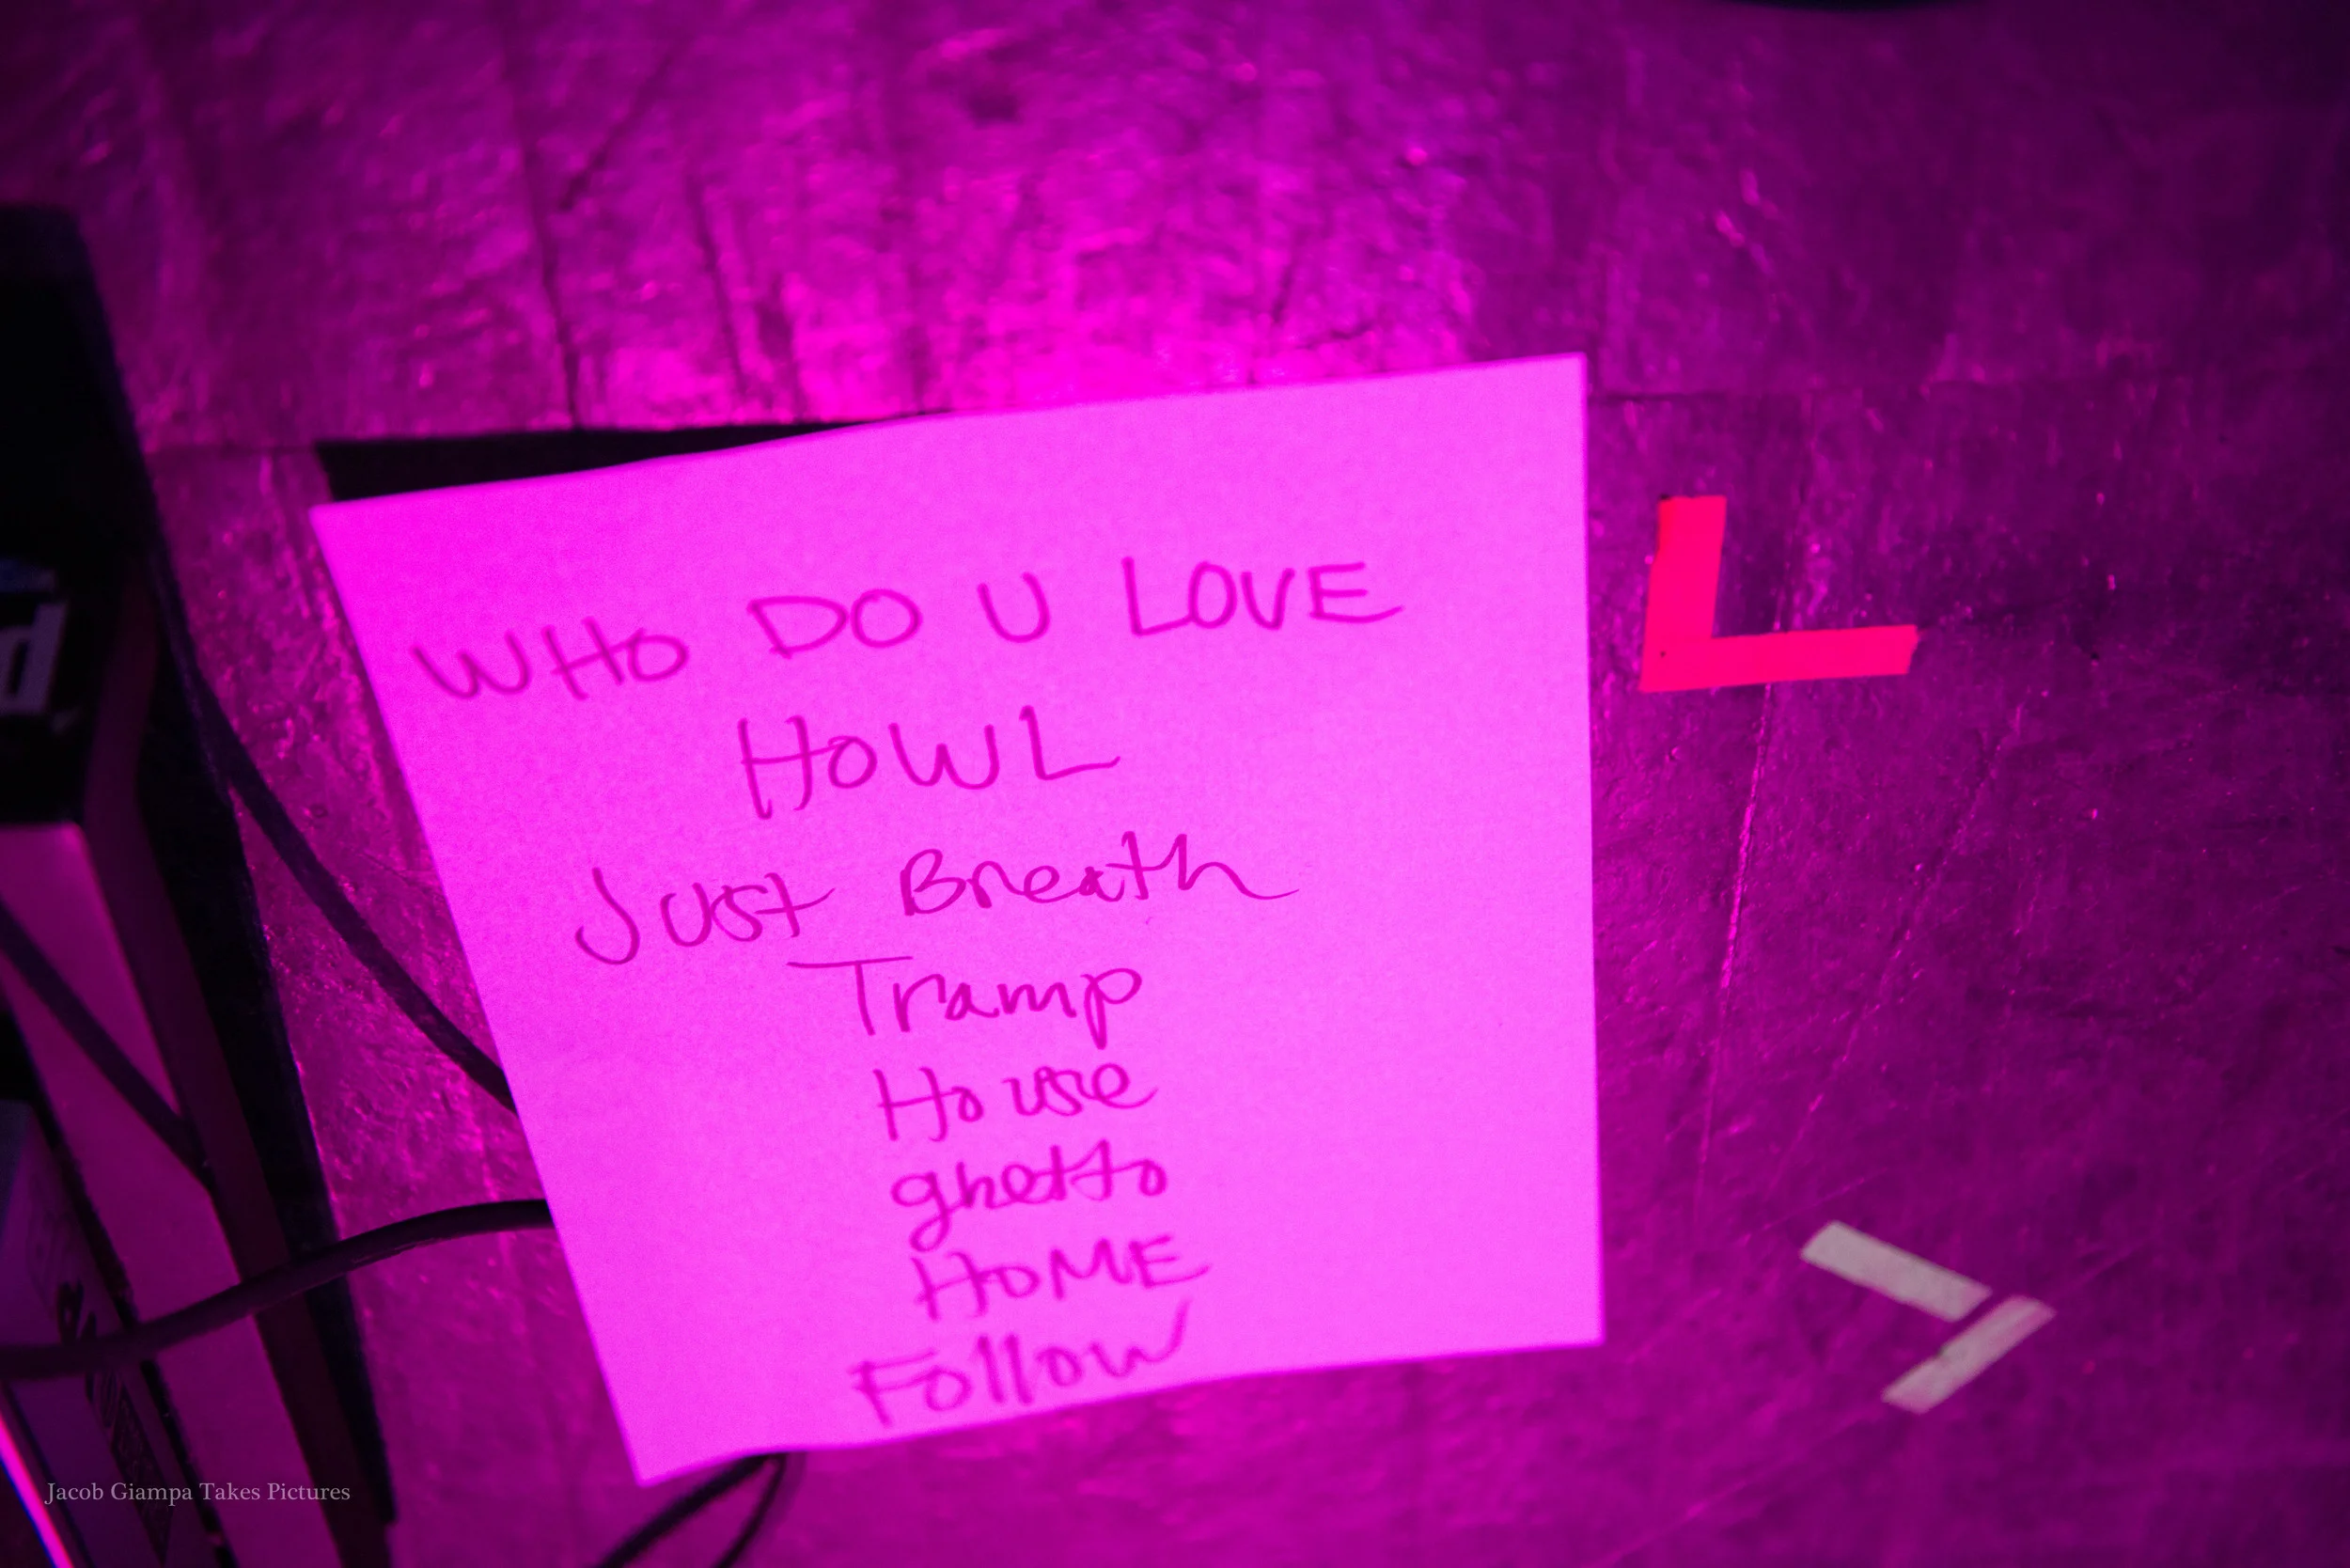 WHO DO U LOVE
HOWL
Just Breath
Tramp
House
ghetto
HOME
Follow
Jacob Giampa Takes Pictures